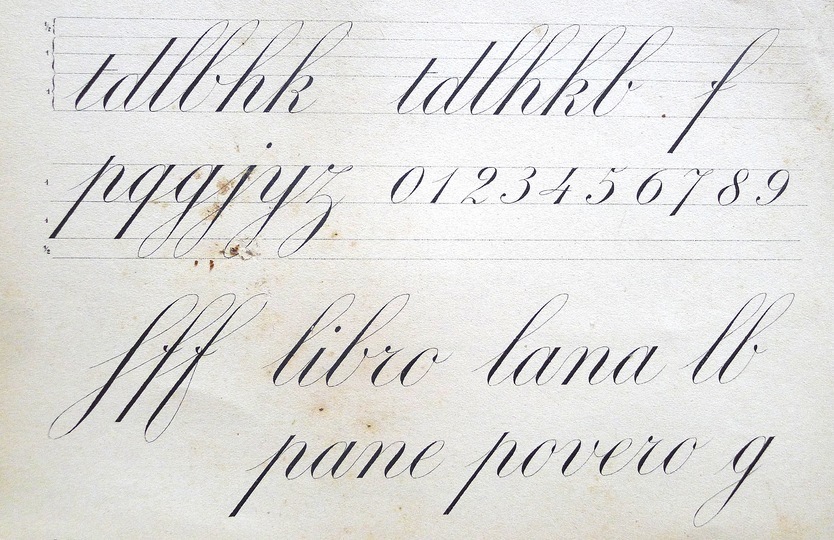 tdlbhk tdlhkb f
pqgjyz 0123456789
fff libro lana lb
pane povero g